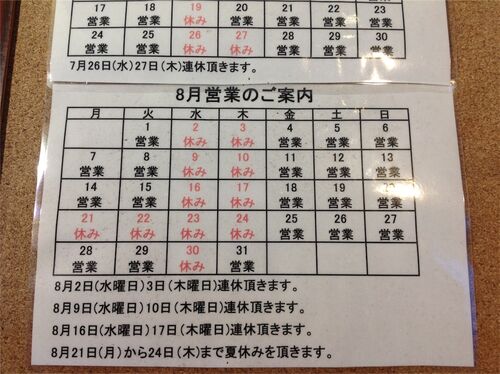 17 18 19 20 21 22 23
営業 営業 休み 営業 営業 営業 営業
24 25 26 27 28 29 30
営業 営業 休み 休み 営業 営業 営業
7月26日(水)27日(木)連休頂きます。
8月営業のご案内
月 火 水 木 金 土 日
1 2 3 4 5 6
営業 休み 休み 営業 営業 営業
7 8 9 10 11 12 13
営業 営業 休み 休み 営業 営業 営業
14 15 16 17 18 19
営業 営業 休み 休み 営業 営業 営業
21 22 23 24 25 26 27
休み 休み 休み 休み 営業 営業 営業
28 29 30 31
営業 営業 休み 営業
8月2日(水曜日)3日(木曜日)連休頂きます。
8月9日(水曜日)10日(木曜日)連休頂きます。
8月16日(水曜日)17日(木曜日)連休頂きます。
8月21日(月)から24日(木)まで夏休みを頂きます。